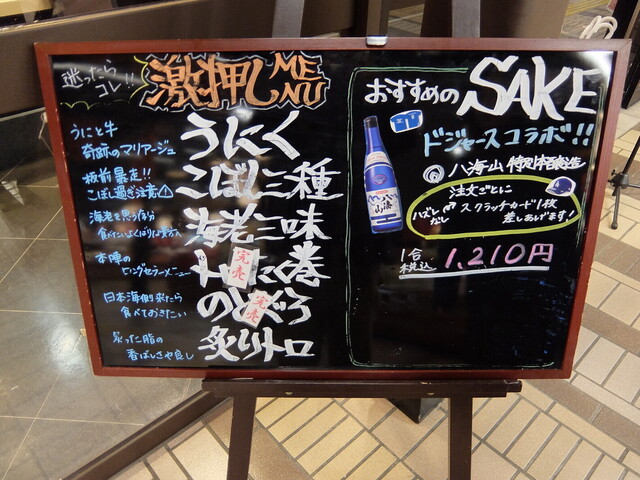 迷ったら
コレ!!
激押し MENU
うにと牛
奇跡のマリアージュ
うにく
板前暴走!!
こぼし過ぎ注意⚠
こぼし三種
海老を思う存分
食べたいよくばりな貴方へ
海老三味
本陣の
ロングセラーメニュー
トロにく巻
完売
日本海側来たら
食べておきたい
のどぐろ
完売
炙った脂の
香ばしさや良し
炙りトロ
おすすめの SAKE
ドジャースコラボ!!
◎ 八海山 特別本醸造
八海山
注文ごとに
スクラッチカード1枚
差しあげます!
ハズレなし
1合
税込 1,210円